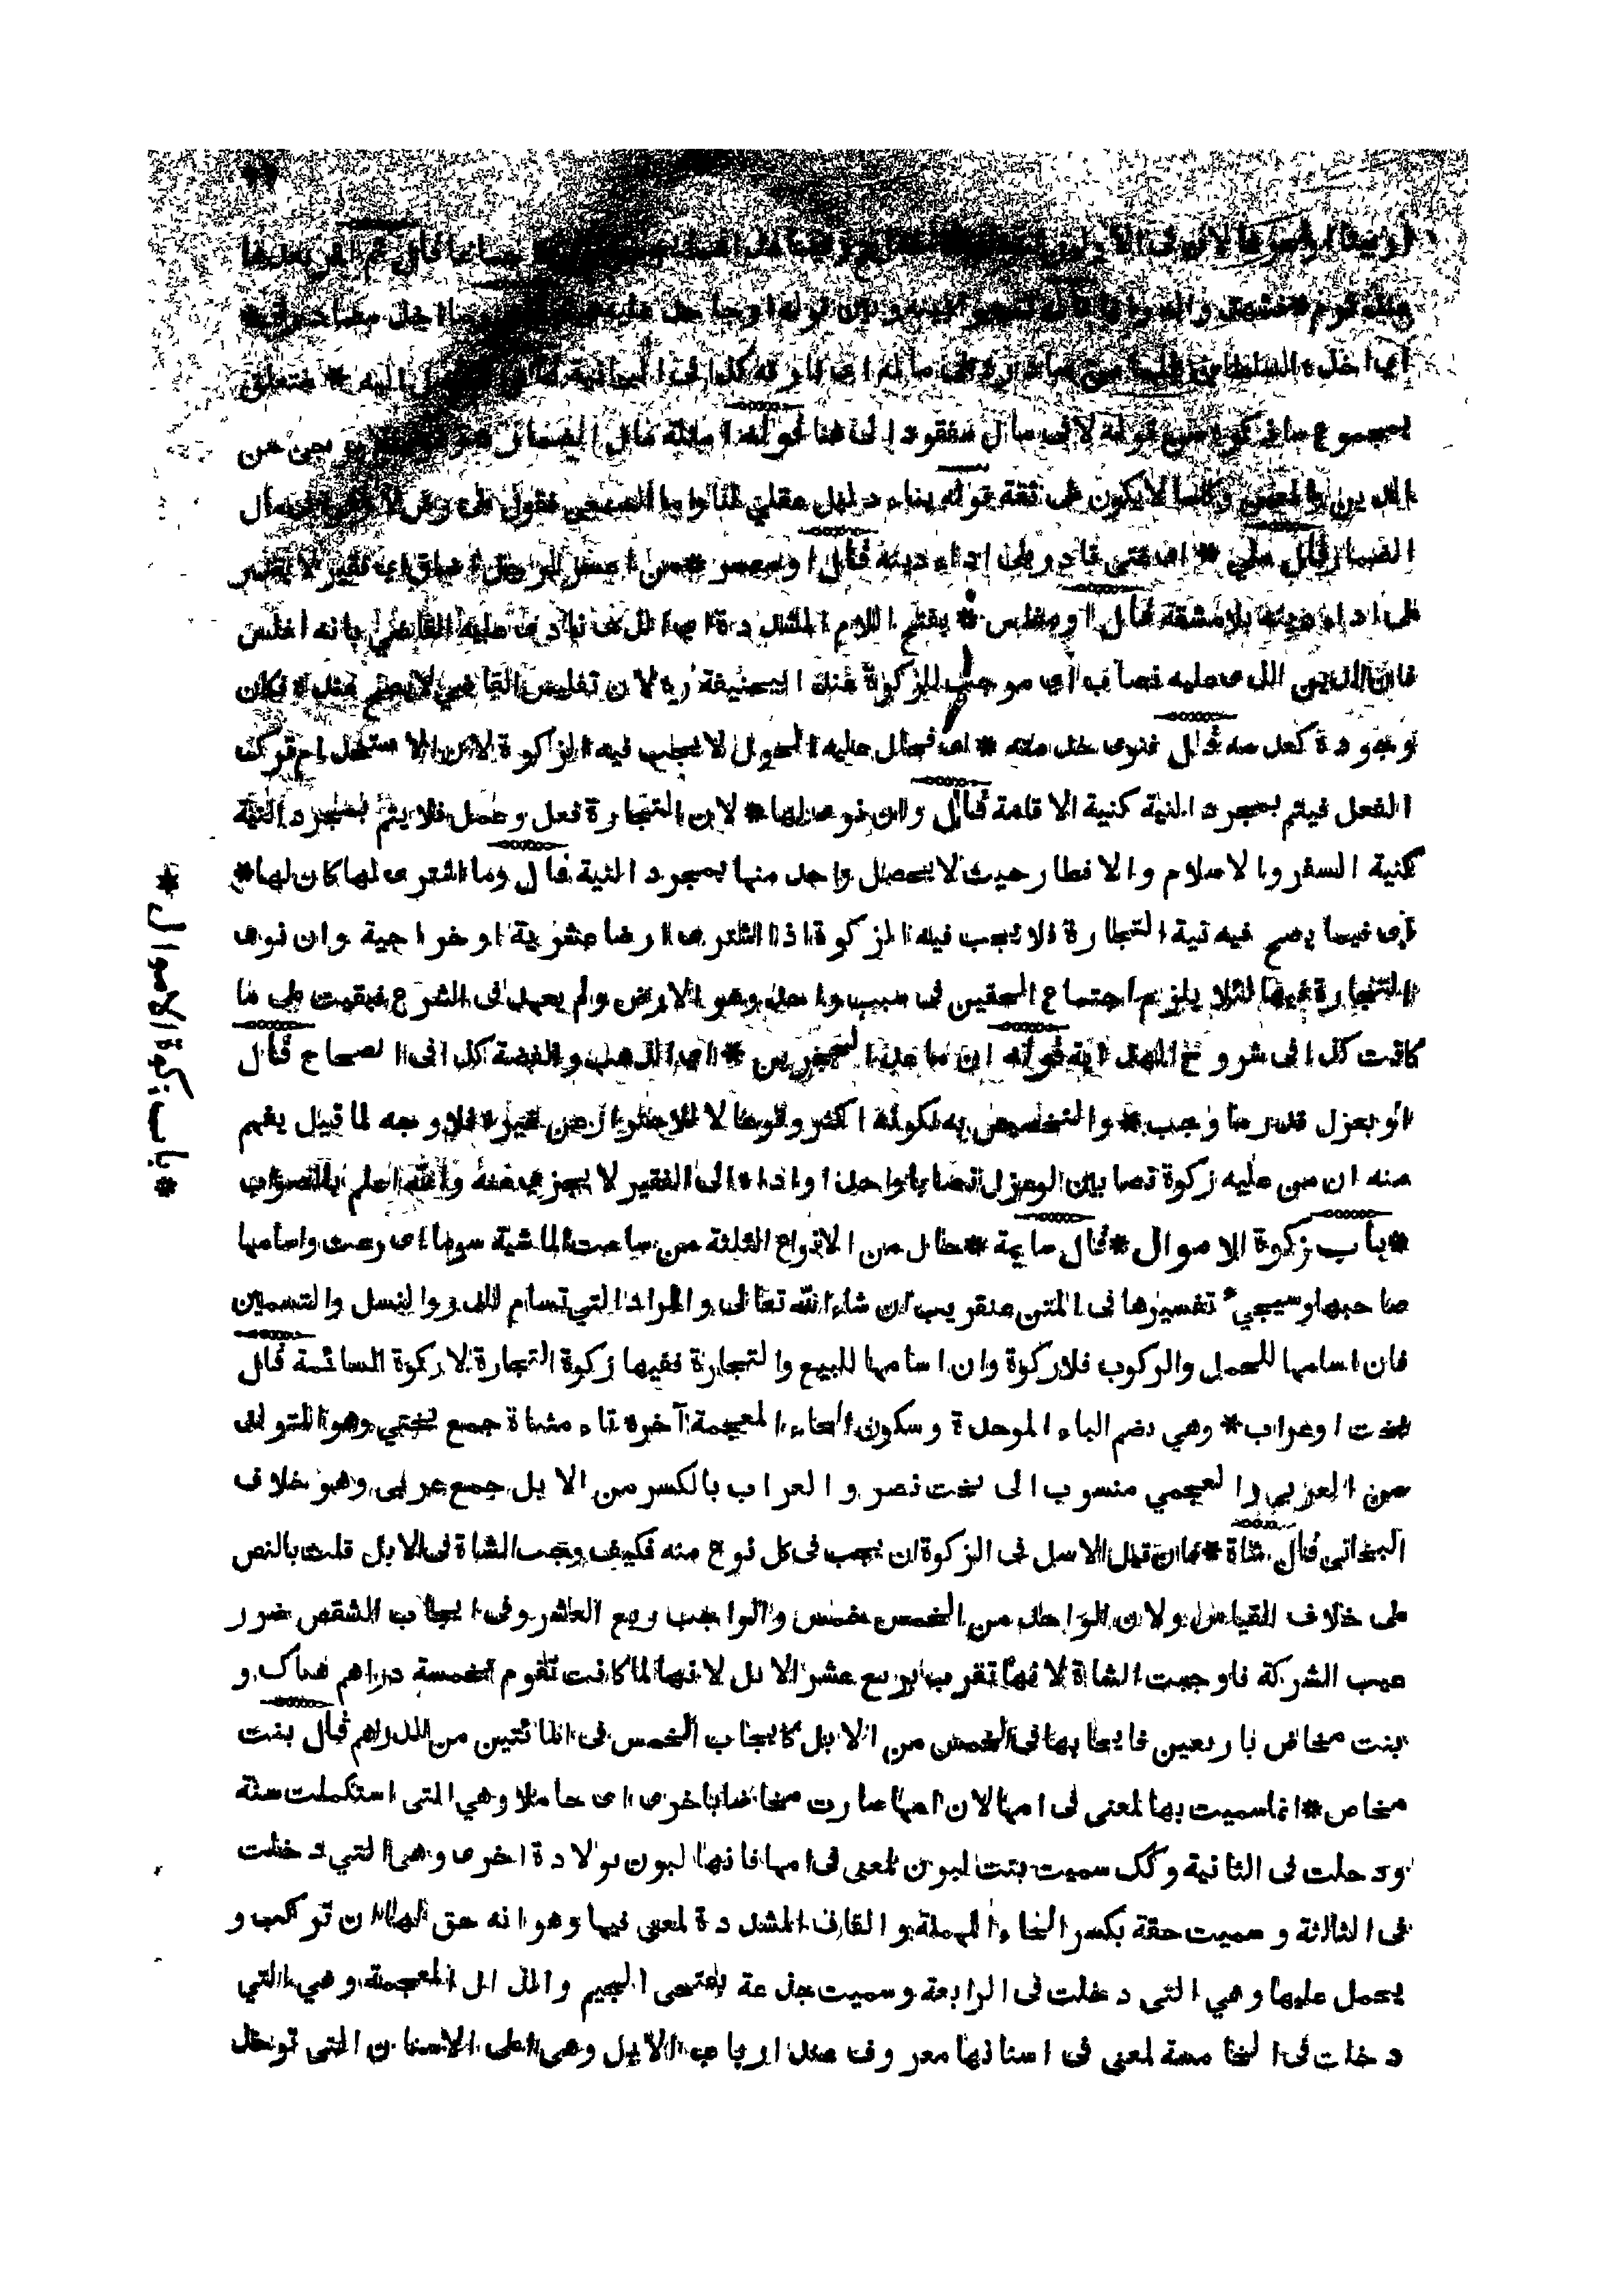 عند قوم
اي اخذه السلطان ماله اى
مجموع ما ذكره من قوله لا فى مال مفقود الى هنا لقوله امثلة مال الضمار
الدين والعين وكانما لا يكون على ثقة قوله بناء دليل عقلي
الضمار قال ملي * اى غنى قادر على اداء دينه قال او معسر * من اعسر الرجل اى فقير لا يقدر
على اداء دينه بلا مشقة قال او مفلس * بفتح اللام المشددة اى الذى نادى عليه القاضي بانه افلس
فان الدين الذى عليه نصاب اى موجب للزكوة عند ابيحنيفة ره لان تفليس القاضي لا يصح عنده فكان
وجوده كعدمه قال فنوى خدمته * اى فحال عليه الحول لا تجب فيه الزكوة لان الاستخدام ترك
الفعل فيتم بمجرد النية كنية الاقامة قال وان نوى لها * لان التجارة فعل وعمل فلا يتم بمجرد النية
كنية السفر والاسلام والافطار حيث لا يحصل واحد منها بمجرد النية قال وما اشترى لها كان لها *
اى فيما يصح فيه نية التجارة فلا تجب فيه الزكوة اذا اشترى ارضا عشرية او خراجية وان نوى
التجارة فيها لئلا يلزم اجتماع الحقين فى سبب واحد وهو الارض ولم يعهد فى الشرع فبقيت على ما
كانت كذا فى شروح الهداية قوله ان ما عدا الحجرين * اى الذهب والفضة كذا فى الصحاح قال
او بعزل قدر ما وجب * والتخصيص به لكونه اكثر وقوعا لا للاحتراز عن غيره فلا وجه لما قيل يفهم
منه ان من عليه زكوة نصابين لو عزل نصابا واحدا واداه الى الفقير لا يجزي عنه والله اعلم بالصواب
* باب زكوة الاموال * قال سايمة * حال من الانواع الثلثة من سامت الماشية سوما اى رعت واسامها
صاحبها وسيجيء تفسيرها فى المتن عنقريب ان شاء الله تعالى والمراد التي تسام للدر والنسل والتسمين
فان اسامها للحمل والركوب فلا زكوة وان اسامها للبيع والتجارة ففيها زكوة التجارة لا زكوة السائمة قال
بخت او عراب * وهي بضم الباء الموحدة وسكون الخاء المعجمة آخره تاء مثناة جمع بختي وهو المتولد
من العربي والعجمي منسوب الى بخت نصر والعراب بالكسر من الابل جمع عربى وهو خلاف
البخاتى قال شاة * فان قيل الاصل فى الزكوة ان تجب فى كل نوع منه فكيف وجب الشاة فى الابل قلت بالنص
على خلاف القياس ولان الواحد من الخمس خمس والواجب ربع العشر وفى ايجاب الشقص ضرر
عيب الشركة فاوجبت الشاة لانها تقرب بربع عشر الابل لانها لما كانت تقوم بخمسة دراهم هناك و
بنت مخاض باربعين فايجابها فى الخمس من الابل كايجاب الخمس فى المائتين من الدراهم قال بنت
مخاص * انما سميت بها لمعنى فى امها لان امها صارت مخاضا باخرى اى حاملا وهي التى استكملت سنة
ودخلت فى الثانية وكك سميت بنت لبون لمعنى فى امها فانها لبون بولادة اخرى وهى التي دخلت
فى الثالثة وسميت حقة بكسر الحاء المهملة والقاف المشددة لمعنى فيها وهو انه حق لها ان تركب و
يحمل عليها وهي التى دخلت فى الرابعة وسميت جذعة بفتحى الجيم والذال المعجمة وهي التي
دخلت فى الخامسة لمعنى فى اسنانها معروف عند ارباب الابل وهى اعلى الاسنان التى توخذ
* باب زكوة الاموال *